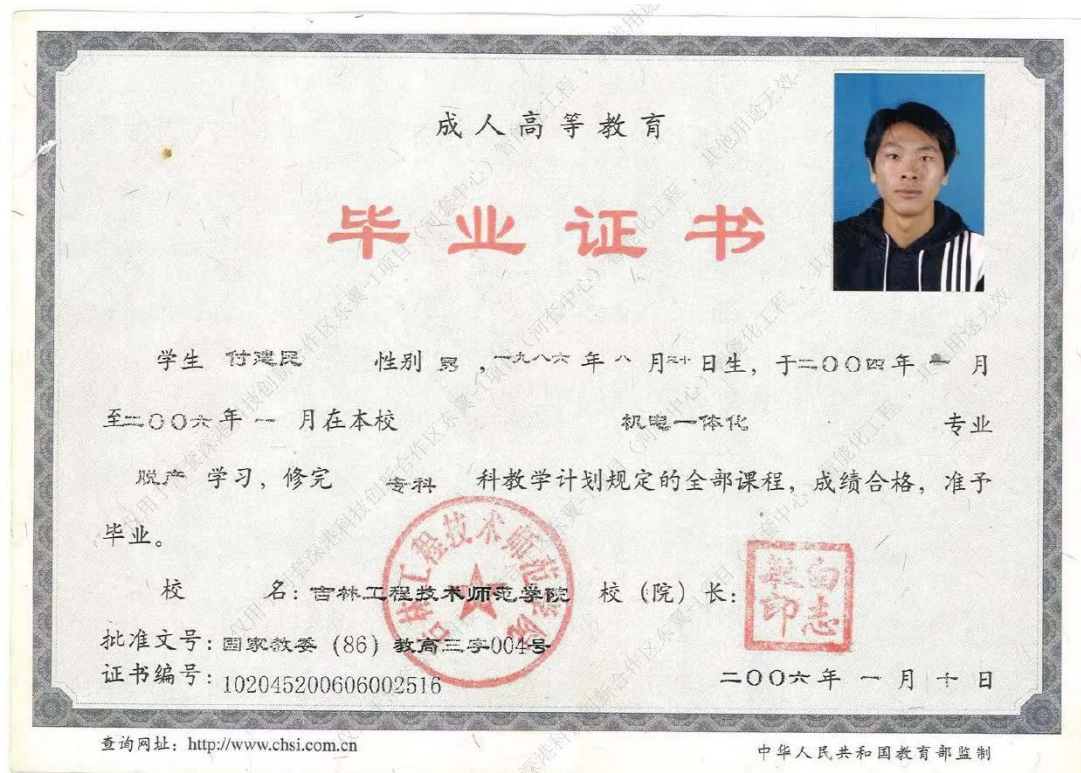 成人高等教育
毕业证书
学生 付建民 性别 男，一九八六年八月三十日生，于二〇〇四年一月
至二〇〇六年一月在本校 机电一体化 专业
脱产 学习，修完 专科 科教学计划规定的全部课程，成绩合格，准予
毕业。
校 名：吉林工程技术师范学院 校（院）长：
白志敏印
吉林工程技术师范学院
批准文号：国家教委（86）教高三字004号
证书编号：102045200606002516
二〇〇六年一月十日
查询网址：http://www.chsi.com.cn
中华人民共和国教育部监制